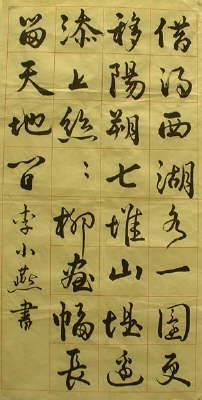 借得西湖水一圜更
移陽朔七堆山堤邊
添上絲々柳畫幅長
留天地間李小燕書